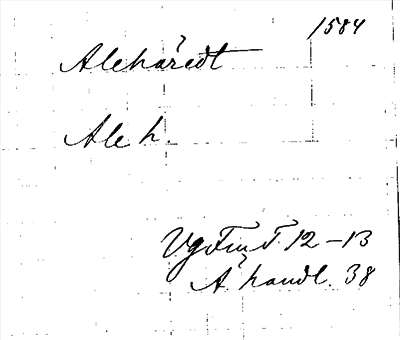 1584
Alehäredt
Ale h.
VgFmT. 12-13
Å handl. 38